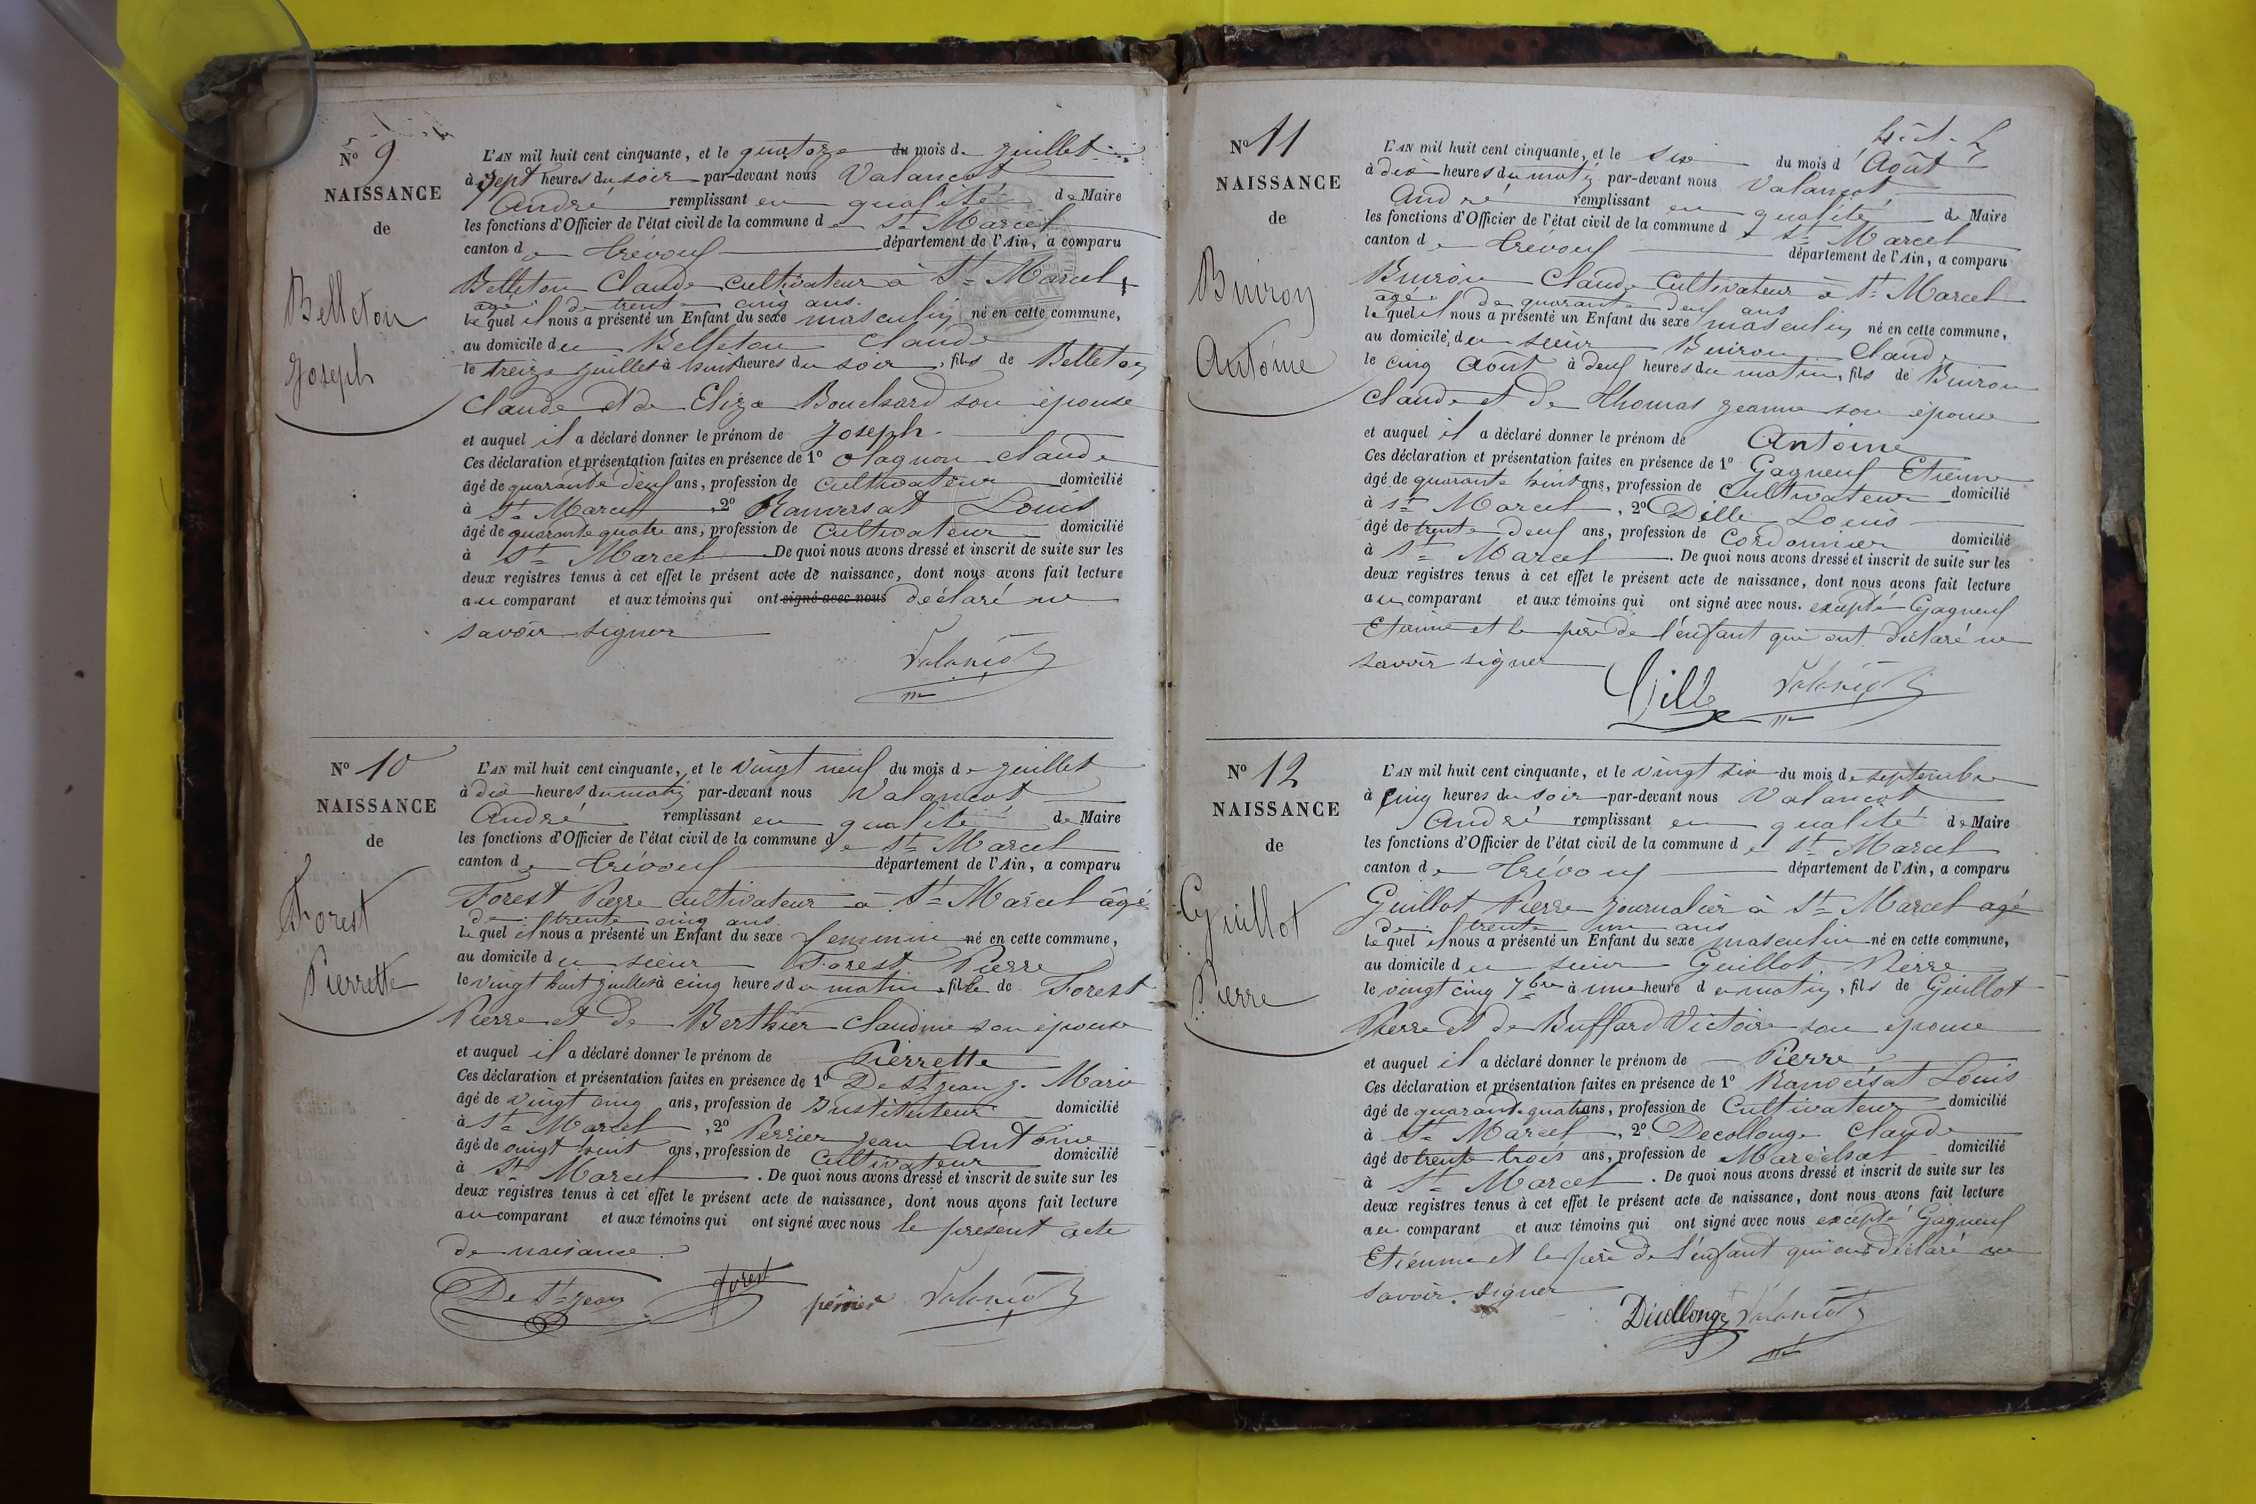 N° 9
NAISSANCE
de
Belleton
Joseph
L'AN mil huit cent cinquante, et le quatorze du mois de juillet
à sept heures du soir par-devant nous Valancot
André remplissant en qualité de Maire
les fonctions d'Officier de l'état civil de la commune de St Marcel
canton de Trévoux département de l'Ain, a comparu
Belleton Claude cultivateur à St Marcel
agé de trente cinq ans.
lequel il nous a présenté un Enfant du sexe masculin né en cette commune,
au domicile du Belleton Claude
le treize juillet à huit heures du soir, fils de Belleton
Claude et de Eliza Bouchard son épouse
et auquel il a déclaré donner le prénom de Joseph.
Ces déclaration et présentation faites en présence de 1° Olagnon Claude
âgé de quarante deux ans, profession de cultivateur domicilié
à St Marcel, 2° Ranversat Louis
âgé de quarante quatre ans, profession de Cultivateur domicilié
à St Marcel De quoi nous avons dressé et inscrit de suite sur les
deux registres tenus à cet effet le présent acte de naissance, dont nous avons fait lecture
au comparant et aux témoins qui ont signé avec nous déclaré ne
savoir signer
Valancot
N° 10
NAISSANCE
de
Forest
Pierrette
L'AN mil huit cent cinquante, et le vingt neuf du mois de juillet
à dix heures du matin par-devant nous Valancot
André remplissant en qualité de Maire
les fonctions d'Officier de l'état civil de la commune de St Marcel
canton de Trévoux département de l'Ain, a comparu
Forest Pierre cultivateur à St Marcel âgé
de trente cinq ans
lequel il nous a présenté un Enfant du sexe feminin né en cette commune,
au domicile du sieur Forest Pierre
le vingt huit juillet à cinq heures du matin, fille de Forest
Pierre et de Berthier Claudine son épouse
et auquel il a déclaré donner le prénom de Pierrette
Ces déclaration et présentation faites en présence de 1° De St jean j. Marie
âgé de vingt cinq ans, profession de Instituteur domicilié
à St Marcel, 2° Perrier jean Antoine
âgé de vingt huit ans, profession de Cultivateur domicilié
à St Marcel. De quoi nous avons dressé et inscrit de suite sur les
deux registres tenus à cet effet le présent acte de naissance, dont nous avons fait lecture
au comparant et aux témoins qui ont signé avec nous le présent acte
de naisance.
De St jean forest périer Valancot
N° 11
NAISSANCE
de
Buiron
Antoine
L'AN mil huit cent cinquante, et le six du mois d'Août
à dix heures du matin par-devant nous Valancot
André remplissant en qualité de Maire
les fonctions d'Officier de l'état civil de la commune de St Marcel
canton de Trévoux département de l'Ain, a comparu
Buiron Claude Cultivateur à St Marcel
agé de quarante deux ans
lequel il nous a présenté un Enfant du sexe masculin né en cette commune,
au domicile du sieur Buiron Claude
le cinq Août à deux heures du matin, fils de Buiron
Claude et de Thomas jeanne son épouse
et auquel il a déclaré donner le prénom de Antoine
Ces déclaration et présentation faites en présence de 1° Gagneux Etienne
âgé de quarante huit ans, profession de Cultivateur domicilié
à St Marcel, 2° Dille Louis
âgé de trente deux ans, profession de Cordonnier domicilié
à St Marcel. De quoi nous avons dressé et inscrit de suite sur les
deux registres tenus à cet effet le présent acte de naissance, dont nous avons fait lecture
au comparant et aux témoins qui ont signé avec nous. excepté Gagneux
Etienne et le père de l'enfant qui ont déclaré ne
savoir signer
Dille Valancot
N° 12
NAISSANCE
de
Guillot
Pierre
L'AN mil huit cent cinquante, et le vingt six du mois de septembre
à cinq heures du soir par-devant nous Valancot
André remplissant en qualité de Maire
les fonctions d'Officier de l'état civil de la commune de St Marcel
canton de Trévoux département de l'Ain, a comparu
Guillot Pierre journalier à St Marcel agé
de trente un ans
lequel il nous a présenté un Enfant du sexe masculin né en cette commune,
au domicile du sieur Guillot Pierre
le vingt cinq 7bre à une heure du matin, fils de Guillot
Pierre et de Buffard Victoire son épouse
et auquel il a déclaré donner le prénom de Pierre
Ces déclaration et présentation faites en présence de 1° Ranversat Louis
âgé de quarante quatre ans, profession de Cultivateur domicilié
à St Marcel, 2° Decollonge Claude
âgé de trente trois ans, profession de Maréchal domicilié
à St Marcel. De quoi nous avons dressé et inscrit de suite sur les
deux registres tenus à cet effet le présent acte de naissance, dont nous avons fait lecture
au comparant et aux témoins qui ont signé avec nous excepté Gagneux
Etienne et le père de l'enfant qui ont déclaré ne
savoir signer
Dicollonge Valancot